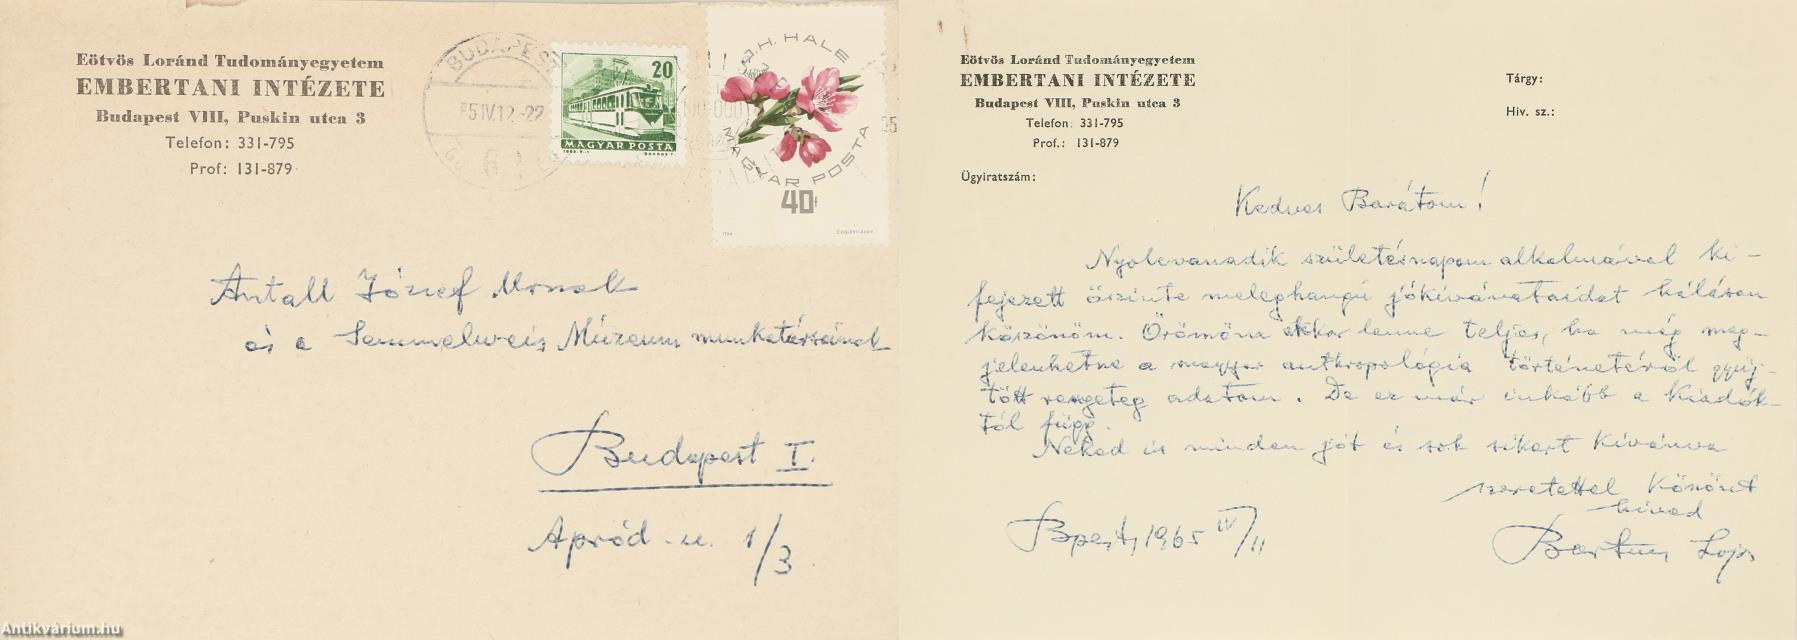 Eötvös Loránd Tudományegyetem
EMBERTANI INTÉZETE
Budapest VIII, Puskin utca 3
Telefon: 331-795
Prof: 131-879
BUDAPEST
65 IV.12.-22
20f
MAGYAR POSTA
J.H. HALE
MAGYAR POSTA
40f
Antall József Urnak
és a Semmelweis Múzeum munkatársainak
Budapest I.
Apród u. 1/3
Eötvös Loránd Tudományegyetem
EMBERTANI INTÉZETE
Budapest VIII, Puskin utca 3
Telefon: 331-795
Prof.: 131-879
Tárgy:
Hiv. sz.:
Ügyiratszám:
Kedves Barátom!
Nyolcvanadik születésnapom alkalmával ki-
fejezett őszinte meleghangú jókívánataidat hálásan
köszönöm. Örömöm akkor lenne teljes, ha még meg-
jelenhetne a magyar anthropológia történetéről gyüj-
tött rengeteg adatom. De ez már inkább a Kiadók-
tól függ.
Neked is minden jót és sok sikert kívánva
szeretettel köszönt
hived
Bpest, 1965 IV/11
Bartucz Lajos
Antikvárium.hu